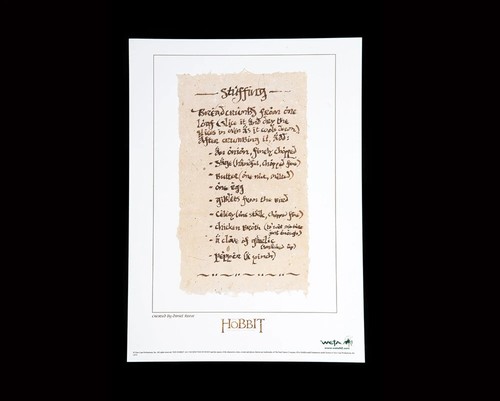 Stuffing
Breadcrumbs from one
loaf (slice it and dry the
slices in oven as it cools down)
After crumbing it, add:
- An onion, finely chopped
- Sage (handful, chopped fine)
- Butter (one nice, melted)
- one egg
- giblets from the bird
- Celery (one stalk, chopped fine)
- chicken broth (to wet mixture
just enough)
- A clove of garlic
- Pepper (a pinch)
created by Daniel Reeve
THE HOBBIT
WETA